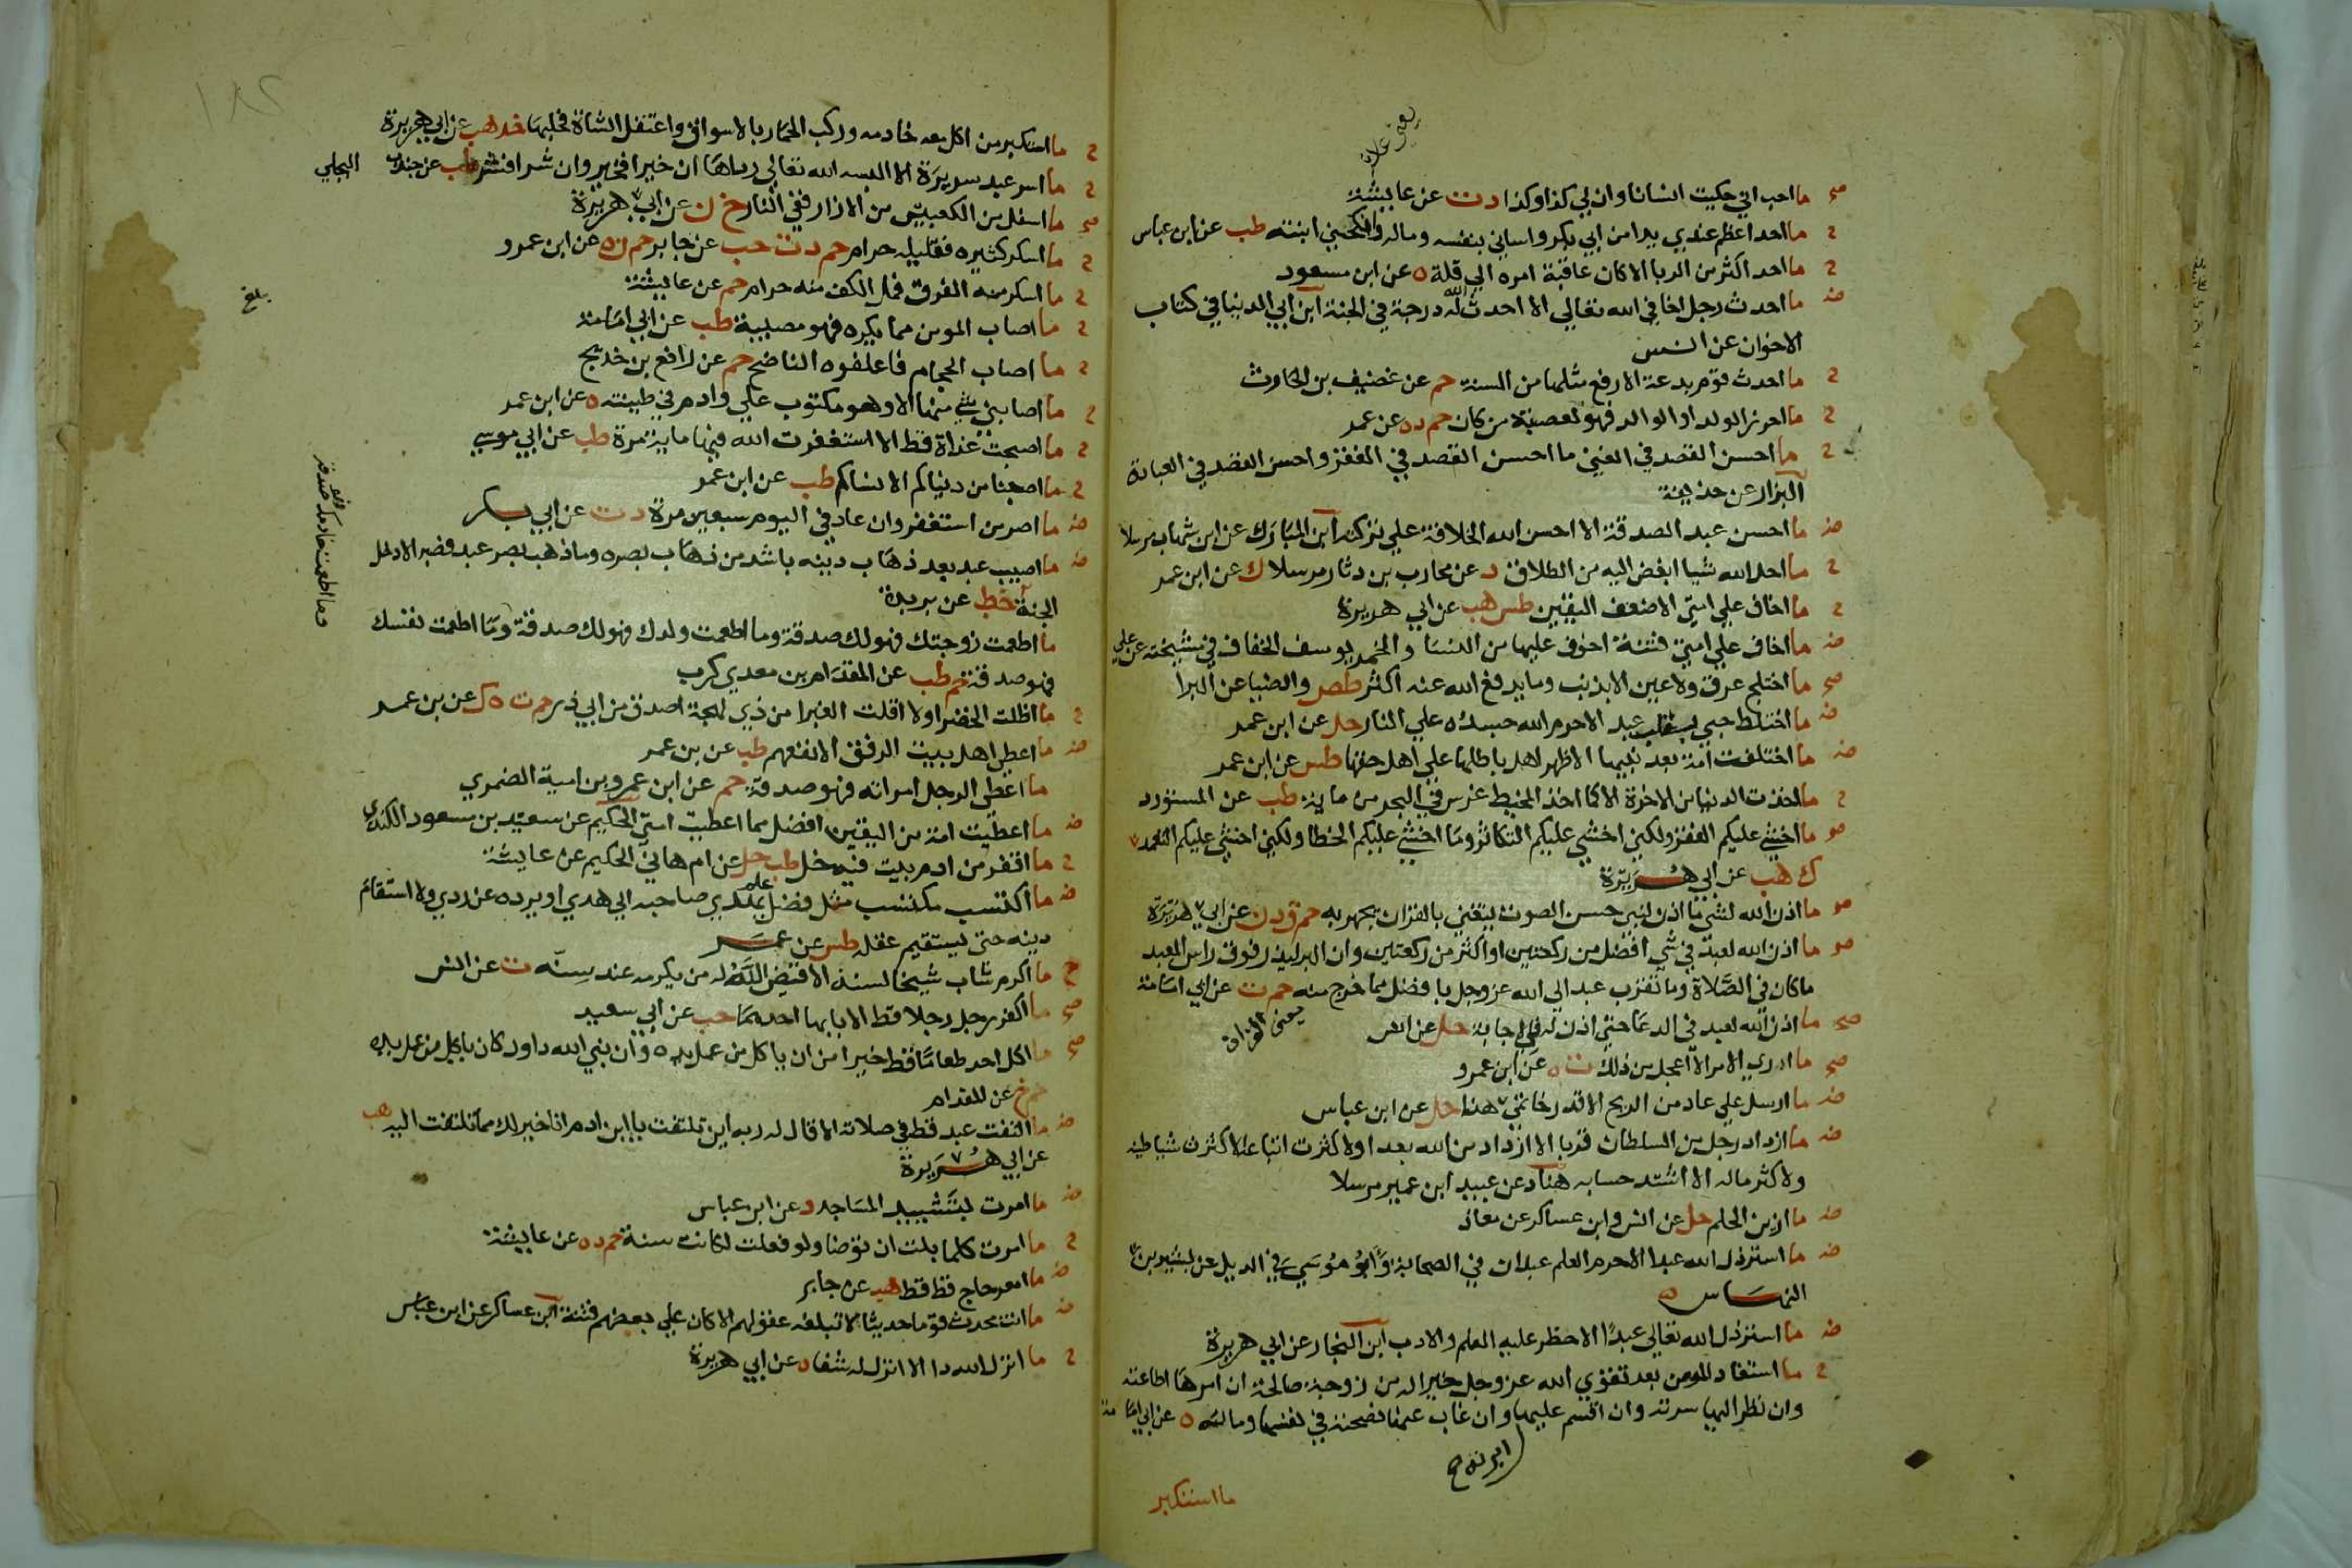 يعني علانا
صح ما احب اني حكيت انسانا وان لي كذا وكذا د ت عن عايشة
ح ما احد اعظم عندي يدا من ابي بكر واساني بنفسه وماله وانكحني ابنته طب عن ابن عباس
ح ما احد اكثر من الربا الا كان عاقبة امره الي قلة ه عن ابن مسعود
ض ما احدث رجل اخا في الله تعالي الا احدث الله له درجة في الجنة ابن ابي الدنيا في كتاب
الاخوان عن انس
ح ما احدث قوم بدعة الا رفع مثلها من السنة حم عن غضيف بن الحارث
ح ما احرز الولد او الوالد فهو لعصبته من كان حم د ه عن عمر
ح ما احسن القصد في الغني ما احسن القصد في الفقر واحسن القصد في العبادة
البزار عن حذيفة
ض ما احسن عبد الصدقة الا احسن الله الخلافة علي تركته ابن المبارك عن ابن شهاب مرسلا
ح ما احل الله شيا ابغض اليه من الطلاق د عن محارب بن دثار مرسلا ك عن ابن عمر
ح ما اخاف علي امتي الا ضعف اليقين طس هب عن ابي هريرة
ض ما اخاف علي امتي فتنة اخوف عليها من النسا والخمر يوسف الخفاف في مشيخته عن علي
صح ما اختلج عرق ولا عين الا بذنب وما يدفع الله عنه اكثر طص والضيا عن البرا
ض ما اختلط حبي بقلب عبد الا حرم الله جسده علي النار حل عن ابن عمر
ض ما اختلفت امة بعد نبيها الا ظهر اهل باطلها علي اهل حقها طس عن ابن عمر
ح ما اخذت الدنيا من الاخرة الا كما اخذ المخيط غرس في البحر من مايه طب عن المستورد
صح ما اخشي عليكم الفقر ولكني اخشي عليكم التكاثر وما اخشي عليكم الخطا ولكني اخشي عليكم التعمد
ك هب عن ابي هريرة
صح ما اذن الله لشي ما اذن لنبي حسن الصوت يتغني بالقران يجهر به حم ق د ن عن ابي هريرة
صح ما اذن الله لعبد في شي افضل من ركعتين او اكثر من ركعتين وان البر ليذر فوق راس العبد
ما كان في الصلاة وما تقرب عبد الي الله عز وجل بافضل مما خرج منه حم ت عن ابي امامة
يعني القران
صح ما اذن الله لعبد في الدعا حتي اذن له في الاجابة حل عن انس
صح ما اري الامر الا اعجل من ذلك ت ه عن ابن عمرو
ض ما ارسل علي عاد من الريح الا قدر خاتمي هذا حل عن ابن عباس
ض ما ازداد رجل من السلطان قربا الا ازداد من الله بعدا ولا كثرت اتباعه الا كثرت شياطينه
ولا كثر ماله الا اشتد حسابه هناد عن عبيد ابن عمير مرسلا
ض ما ازين الحلم حل عن انس وابن عساكر عن معاذ
ض ما استرذل الله عبدا الا حرم العلم عبدان في الصحابة وابو موسي في الذيل عن بشير بن
النهاس
ض ما استرذل الله تعالي عبدا الا حظر عليه العلم والادب ابن النجار عن ابي هريرة
ح ما استفاد المومن بعد تقوي الله عز وجل خيرا له من زوجة صالحة ان امرها اطاعته
وان نظر اليها سرته وان اقسم عليها وان غاب عنها نصحته في نفسها وماله ه عن ابي امامة
ابرته
ما استكبر
١٨٢
ح ما استكبر من اكل معه خادمه وركب الحمار بالاسواق واعتقل الشاة فحلبها خد هب عن ابي هريرة
ح ما اسر عبد سريرة الا البسه الله تعالي رداها ان خيرا فخير وان شرا فشر طب عن جندب البجلي
صح ما اسفل من الكعبين من الازار ففي النار خ ن عن ابي هريرة
ح ما اسكر كثيره فقليله حرام حم د ت حب عن جابر حم ن ه عن ابن عمرو
ح ما اسكر منه الفرق فمل الكف منه حرام حم عن عايشة
بلغ
ح ما اصاب المومن مما يكره فهو مصيبة طب عن ابي امامة
ح ما اصاب الحجام فاعلفوه الناضح حم عن رافع بن خديج
ح ما اصابني شي منها الا وهو مكتوب علي وادم في طينته ه عن ابن عمر
ح ما اصبحت غداة قط الا استغفرت الله فيها ماية مرة طب عن ابي موسي
ح ما اصبنا من دنياكم الا نساكم طب عن ابن عمر
ض ما اصر من استغفر وان عاد في اليوم سبعين مرة د ت عن ابي بكر
ض ما اصيب عبد بعد ذهاب دينه باشد من ذهاب بصره وما ذهب بصر عبد فصبر الا دخل
الجنة خط عن بريدة
ما اطعمت زوجتك فهو لك صدقة وما اطعمت ولدك فهو لك صدقة وما اطعمت نفسك
وما اطعمت خادمك فهو صدقة
فهو صدقة حم طب عن المقدام بن معدي كرب
ح ما اظلت الخضرا ولا اقلت الغبرا من ذي لهجة اصدق من ابي ذر حم ت ه ك عن بن عمر
ض ما اعطي اهل بيت الرفق الا نفعهم طب عن بن عمر
ما اعطي الرجل امراته فهو صدقة حم عن ابن عمرو بن امية الضمري
ض ما اعطيت امة من اليقين افضل مما اعطيت امتي الحكيم عن سعيد بن مسعود الكندي
ح ما اقفر من ادم بيت فيه خل طب حل عن ام هاني الحكيم عن عايشة
ض ما اكتسب مكتسب مثل فضل علم يهدي صاحبه الي هدي او يرده عن ردي ولا استقام
دينه حتي يستقيم عقله طس عن عمر
ح ما اكرم شاب شيخا لسنه الا قيض الله له من يكرمه عند سنه ت عن انس
صح ما اكفر رجل رجلا قط الا بابها احدهما حب عن ابي سعيد
صح ما اكل احد طعاما قط خيرا من ان ياكل من عمل يده وان نبي الله داود كان ياكل من عمل يده
حم خ عن المقدام
ض ما التفت عبد قط في صلاته الا قال له ربه اين تلتفت يا ابن ادم انا خير لك مما تلتفت اليه هب
عن ابي هريرة
ض ما امرت بتشييد المساجد د عن ابن عباس
ح ما امرت كلما بلت ان توضا ولو فعلت لكانت سنة حم د ه عن عايشة
ض ما امعر حاج قط قط هب عن جابر
ض ما انت محدث قوما حديثا لا تبلغه عقولهم الا كان علي بعضهم فتنة ابن عساكر عن ابن عباس
ح ما انزل الله دا الا انزل له شفا ه عن ابي هريرة